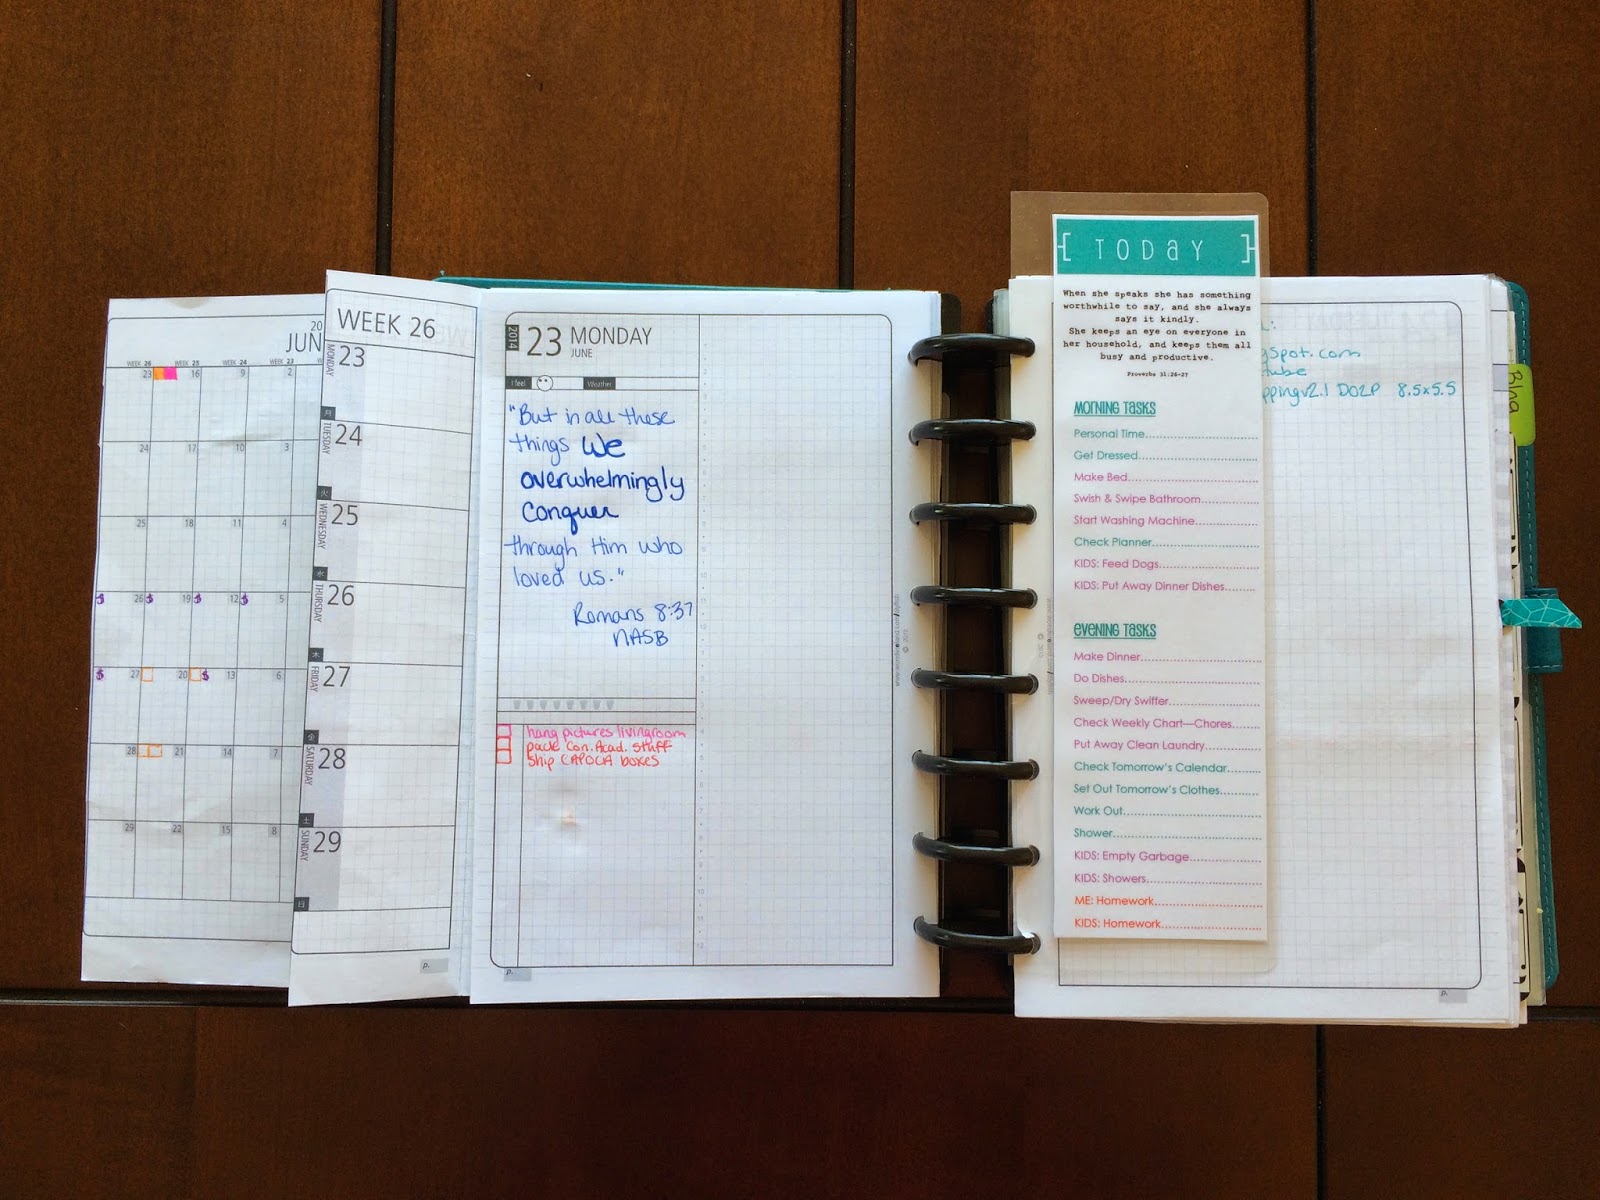 20
JUN
WEEK 26 WEEK 25 WEEK 24 WEEK 23
23 16 9 2
24 17 10 3
25 18 11 4
$ 26 $ 19 $ 12 $ 5
$ 27 20 $ 13 6
28 21 14 7
29 22 15 8
WEEK 26
MONDAY 23
月
TUESDAY 24
火
WEDNESDAY 25
水
THURSDAY 26
木
FRIDAY 27
金
SATURDAY 28
土
SUNDAY 29
日
p.
2014 23 MONDAY
JUNE
I feel Weather
"But in all these
things We
overwhelmingly
Conquer
through Him who
loved us."
Romans 8:37
NASB
hang pictures livingroom
pack Con. Acad. stuff
ship CAPOCA boxes
p.
[ TODAY ]
When she speaks she has something
worthwhile to say, and she always
says it kindly.
She keeps an eye on everyone in
her household, and keeps them all
busy and productive.
Proverbs 31:26-27
MORNING TASKS
Personal Time
Get Dressed
Make Bed
Swish & Swipe Bathroom
Start Washing Machine
Check Planner
KIDS: Feed Dogs
KIDS: Put Away Dinner Dishes
EVENING TASKS
Make Dinner
Do Dishes
Sweep/Dry Swiffer
Check Weekly Chart—Chores
Put Away Clean Laundry
Check Tomorrow's Calendar
Set Out Tomorrow's Clothes
Work Out
Shower
KIDS: Empty Garbage
KIDS: Showers
ME: Homework
KIDS: Homework
gspot.com
tube
ppingv2.1 DO2P 8.5x5.5
p.
Blog